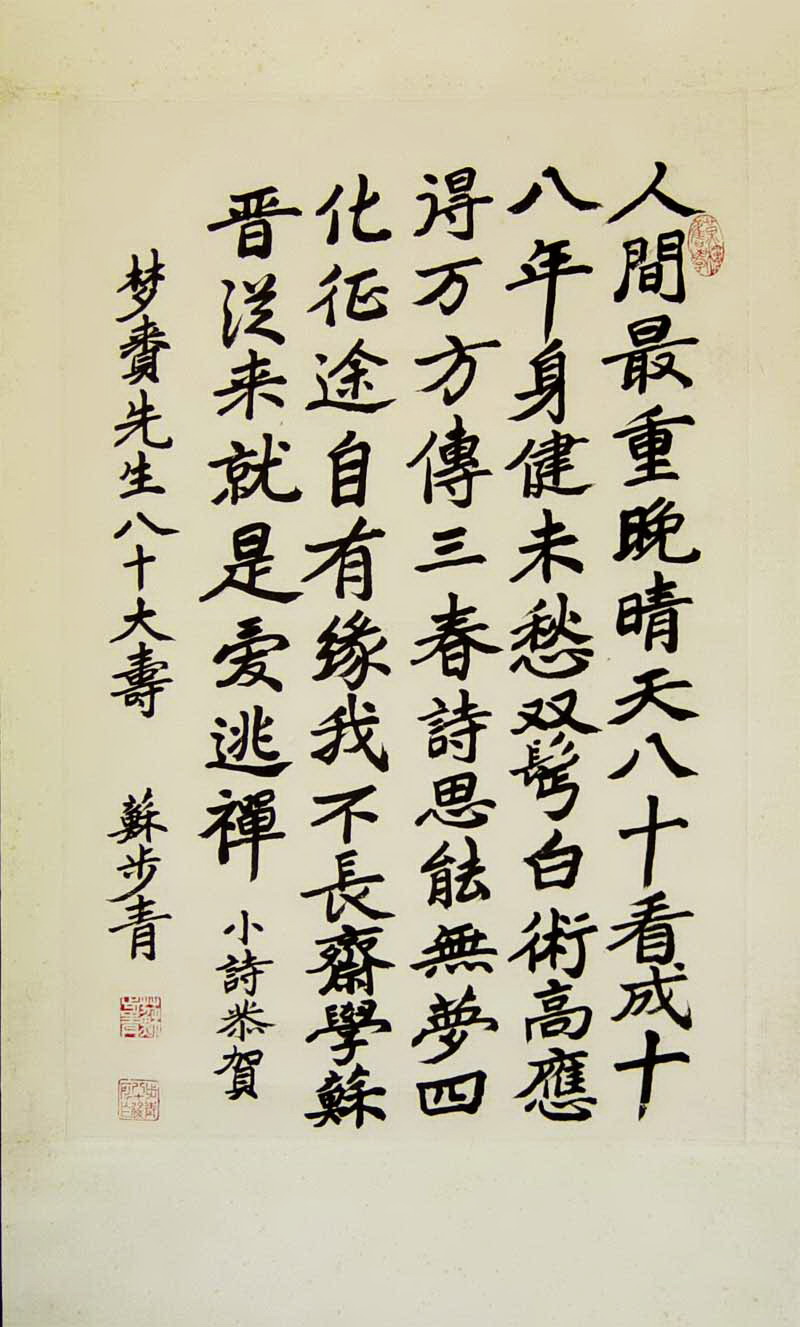 人間最重晚晴天八十看成十
八年身健未愁双鬓白術高應
得万方傳三春詩思能無夢四
化征途自有緣我不長齋學蘇
晋從来就是愛逃禪 小詩恭賀
梦賚先生八十大壽 蘇步青